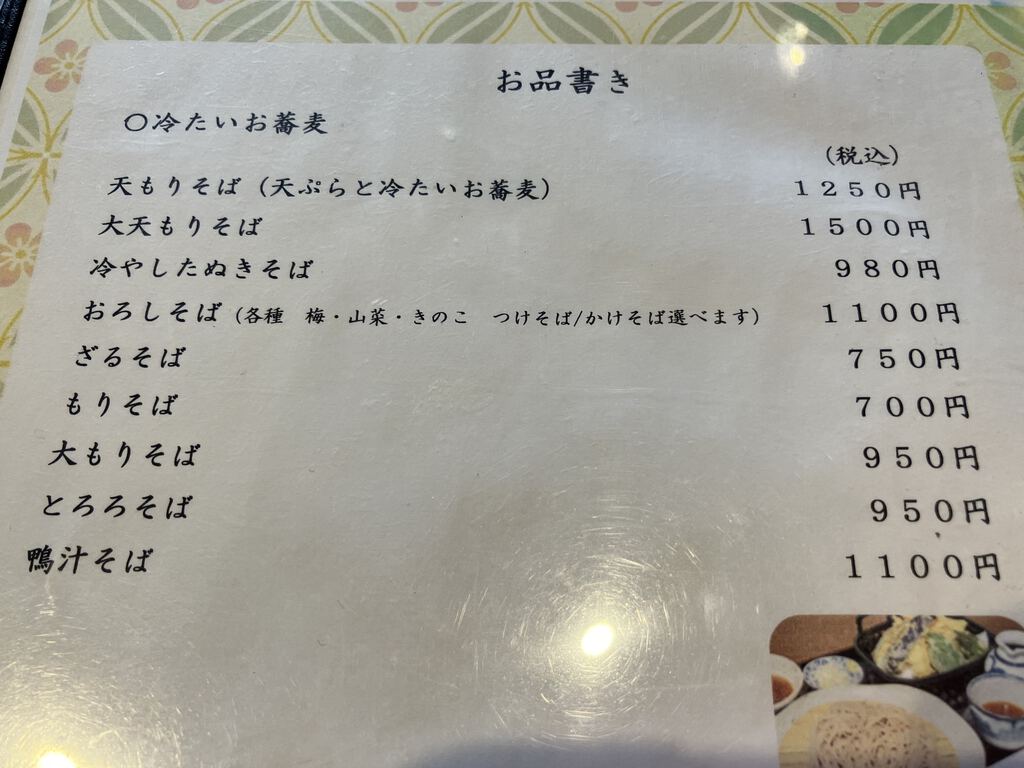 お品書き
〇冷たいお蕎麦
(税込)
天もりそば (天ぷらと冷たいお蕎麦) 1250円
大天もりそば 1500円
冷やしたぬきそば 980円
おろしそば (各種 梅・山菜・きのこ つけそば/かけそば選べます) 1100円
ざるそば 750円
もりそば 700円
大もりそば 950円
とろろそば 950円
鴨汁そば 1100円